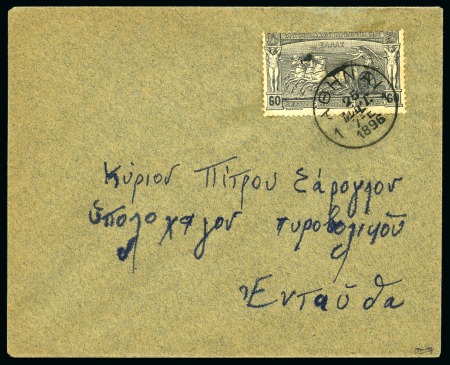 ΕΛΛΑΣ
60 60
ΑΘΗΝΑΙ
25
1
1896
Κύριον Πέτρον Σάρογλον
Ὑπολοχαγον πυροβολικοῦ
Ἐνταύθα